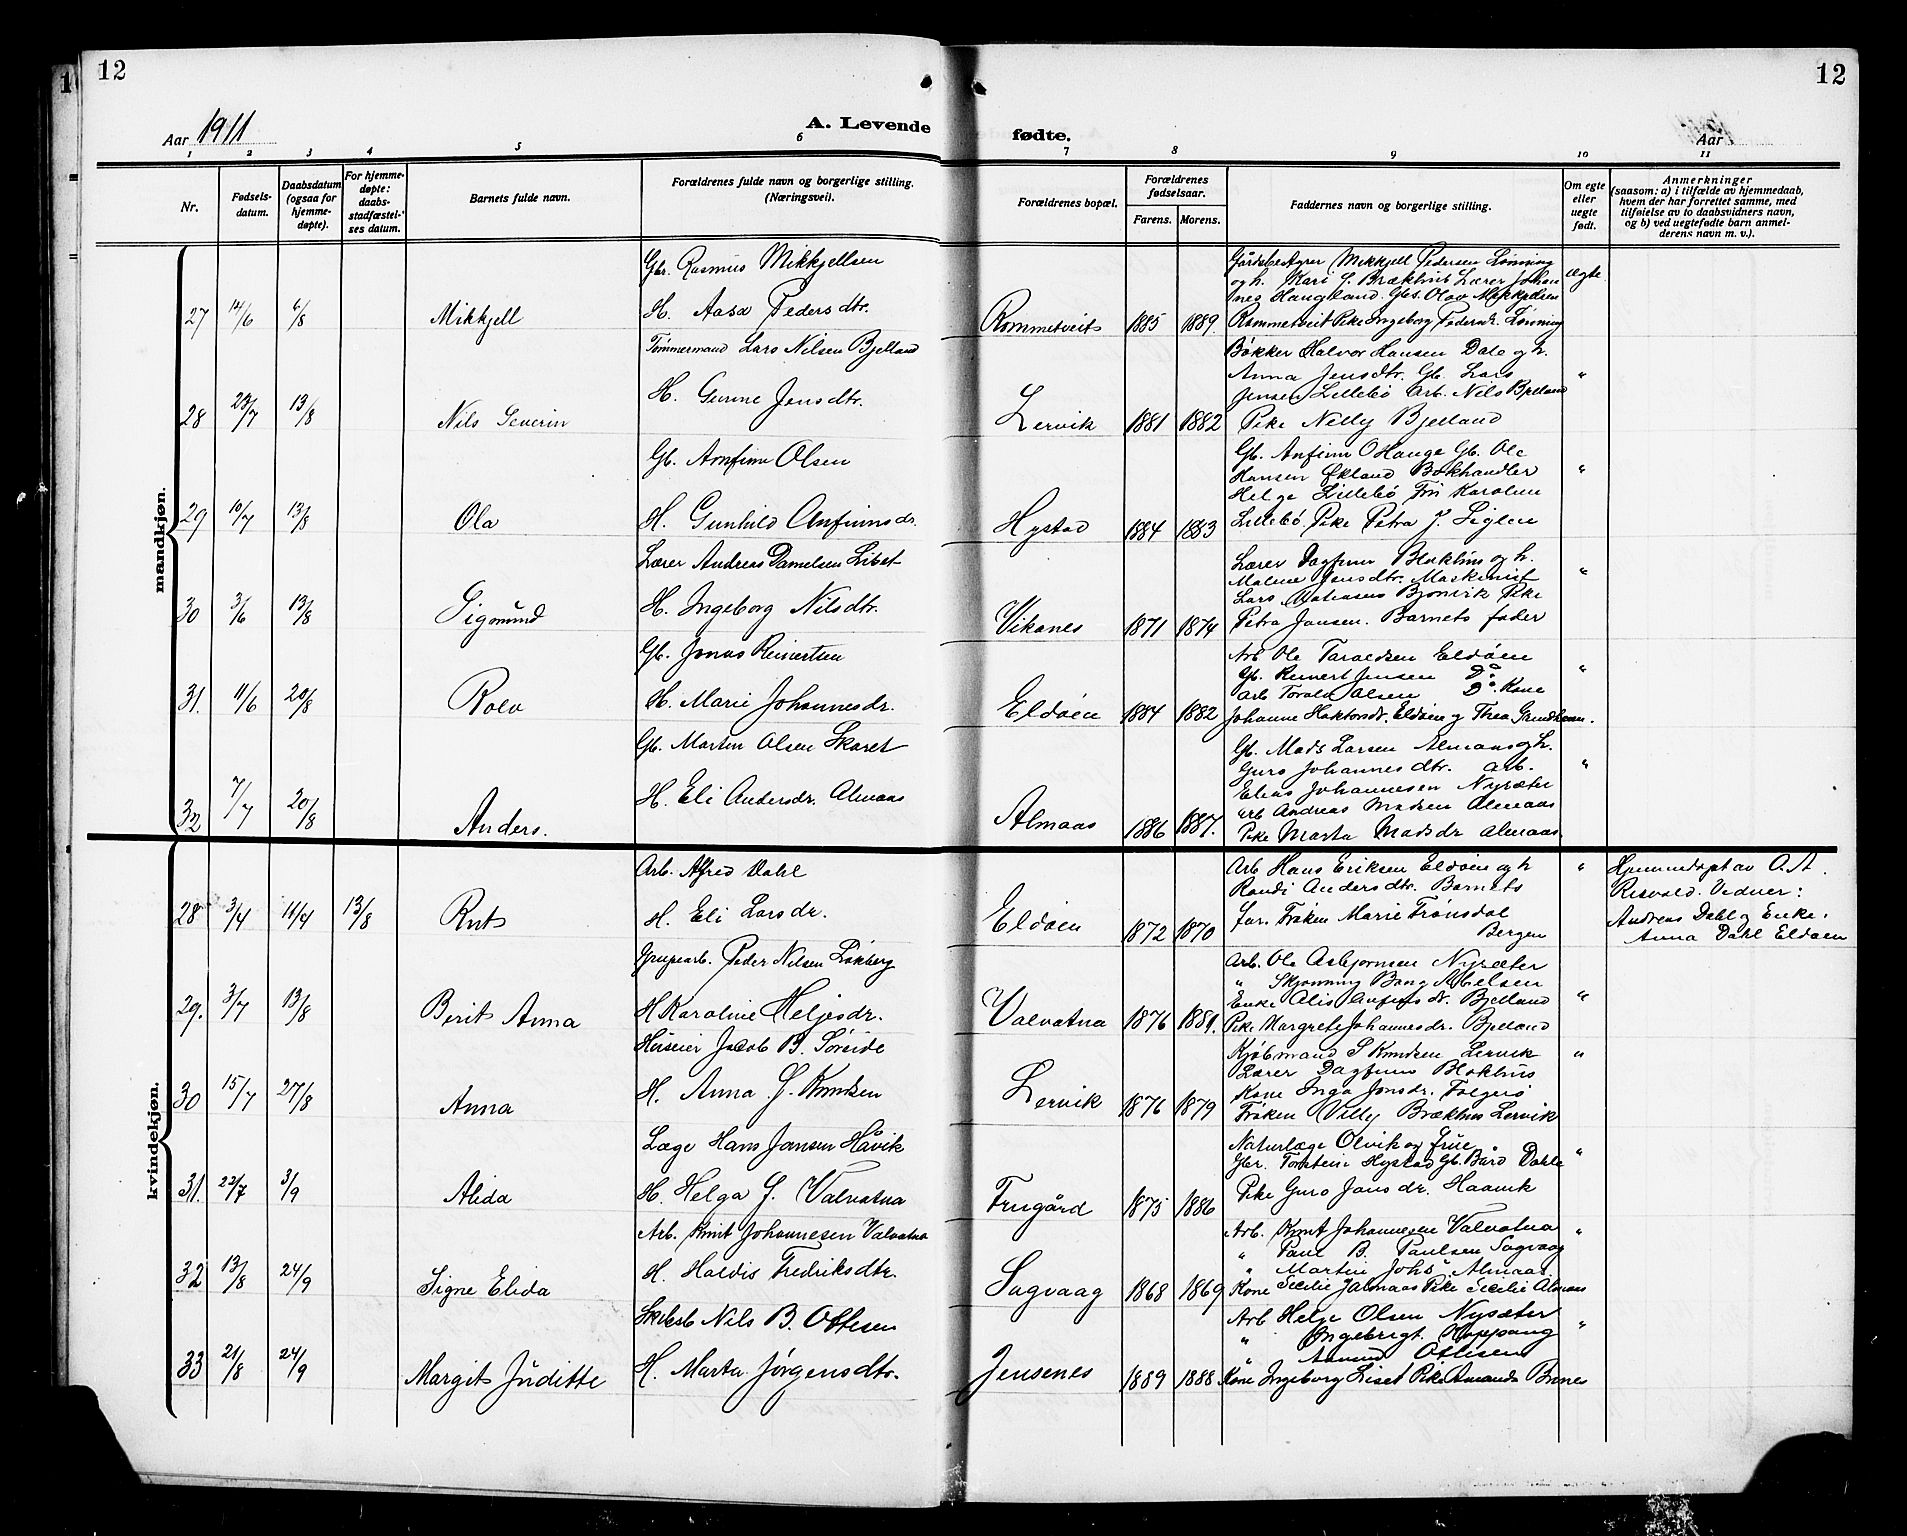 12
12
Aar 1911
A. Levende fødte.
Aar
1 2 3 4 5 6 7 8 9 10 11
Nr.
Fødsels-
datum.
Daabsdatum
(ogsaa for
hjemme-
døpte).
For hjemme-
døpte:
daabs-
stadfæstel-
ses datum.
Barnets fulde navn.
Forældrenes fulde navn og borgerlige stilling.
(Næringsvei).
Forældrenes bopæl.
Forældrenes
fødselsaar.
Farens. Morens.
Faddernes navn og borgerlige stilling.
Om egte
eller
uegte
født.
Anmerkninger
(saasom: a) i tilfælde av hjemmedaab,
hvem der har forrettet samme, med
tilføielse av to daabsvidners navn,
og b) ved uegtefødte barn anmel-
derens navn m. v.).
mandkjøn.
Gbr. Rasmus Mikkjellsen
Gårdbr Mikkjell Pedersen Lønning
og h. Mari J. Brækhus Lærer Johan
nes Haugland. Gbs. Olav Mikkjelsen
ægte
27 14/6 6/8 Mikkjell H. Aasa Pedersdtr. Rommetveit 1885 1889. Rommetveit Pike Ingeborg Pedersdr. Lønning
Tømmermand Lars Nilsen Bjelland
Bøkker Halvor Hansen Dale og h.
Anna Jensdtr. Gb. Lars "
Jensen Lillebø Arb. Nils Bjelland
28 23/7 13/8 Nils Severin H. Gurine Jonsdtr. Lervik 1881 1882 Pike Nelly Bjelland
Gb. Arnfinn Olsen
Gb. Anfinn O Hauge Gb. Ole
Hansen Økland Bokhandler "
Helge Lillebø Frk Karoline
29 10/7 13/8 Ola H. Gunhild Anfinnsdr. Hystad 1884 1883 Lillebø. Pike Petra J. Siglen
Lærer Andreas Danielsen Liset
Lærer Dagfinn Blokhus og h.
Malene Jensdtr. Maskinist "
Lars Bjørnvik Pike
30 3/6 13/8 Sigmund H. Ingeborg Nilsdtr. Vikanes 1871 1874 Petra Jansen. Barnets fader
Gb. Jonas Reinertsen
Arb Ole Taraldsen Eldøen
Gb. Reinert Jensen Do "
Arb Torald Olsen Do. Kone
31. 11/6 20/8 Rolv H. Marie Johannesdr. Eldøen 1884 1882 Johanne Haktorsdr. Eldøen og Thea
Gb. Martin Olsen Skaret
Gb. Mads Larsen Almaas og h.
Guro Johannesdtr. Arb. "
Elias Johannesen Nysæter
Arb Andreas Madsen Almaas
32 7/7 20/8 Anders. H. Eli Andersdr. Almaas Almaas 1886 1887. Pike Marta Madsdr Almaas
kvindekjøn.
Arb. Alfred Dahl
Arb Hans Eriksen Eldøen og h "
Randi Andersdtr. Barnets
Hjemmedøpt av O. A.
Risvold. Vidner:
28 3/4 11/4 13/8 Rut H. Eli Larsdr. Eldøen 1872 1870 far. Frøken Marie Frønsdal
Bergen
Andreas Dahl og Enke
Anna Dahl Eldøen
Grupearb. Peder Nilsen Løkberg
Arb. Ole Asbjørnsen Nysæter
" Skjønning Bang Abelsen
Enke Alis Anfinsdr. Bjelland "
29. 3/7 13/8 Berit Anna H Karoline Heljesdr. Valvatna 1876 1881. Pike Margrete Johannesdr. Bjelland
Jacob B. Søreide
Kjøbmand S Knudsen Lervik "
Lærer Dagfinn Blokhus
Kone Inga Jonsdr. Folgerø
30 15/7 27/8 Anna H. Anna J. Knudsen Lervik 1876 1879 Frøken Villy Brækhus Lervik
Læge Hans Jansen Håvik
Naturlæge Olvik og frue
Gbr. Torstein Hystad Gb. Bård Dahle "
31. 22/7 3/9 Alida H. Helga J. Valvatna Frugård 1875 1886 Pike Guro Jansdr. Haavik
Arb. Knut Johannesen Valvatna
Arb. Knut Johannesen Valvatna "
" Paul B. Paulsen Sagvaag
" Martin Johs Almaas
32 13/8 24/9 Signe Elida H. Haldis Fredriksdtr. Sagvaag 1868 1869 Kone Secilie J Almaas Pike Secilie Almaas
Skibsb Nils B. Ottesen
Arb Helge Olsen Nysæter
" Ingebrigt Hoppang "
" Ottesen
33 21/8 24/9 Margit Juditte H. Marta Jørgensdtr. Jensenes 1889 1888 Kone Ingeborg Liset Pike Amanda